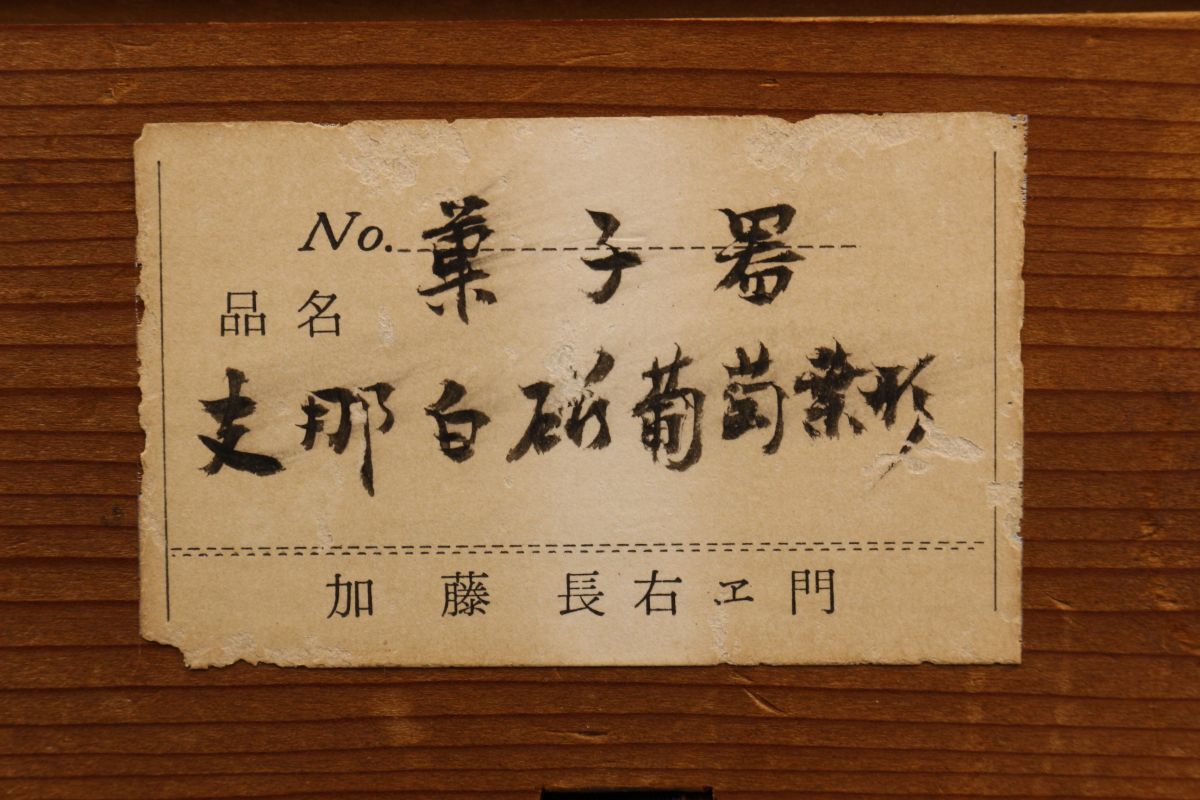 No. 菓子器
品名
支那白葡萄葉形
加藤長右ヱ門